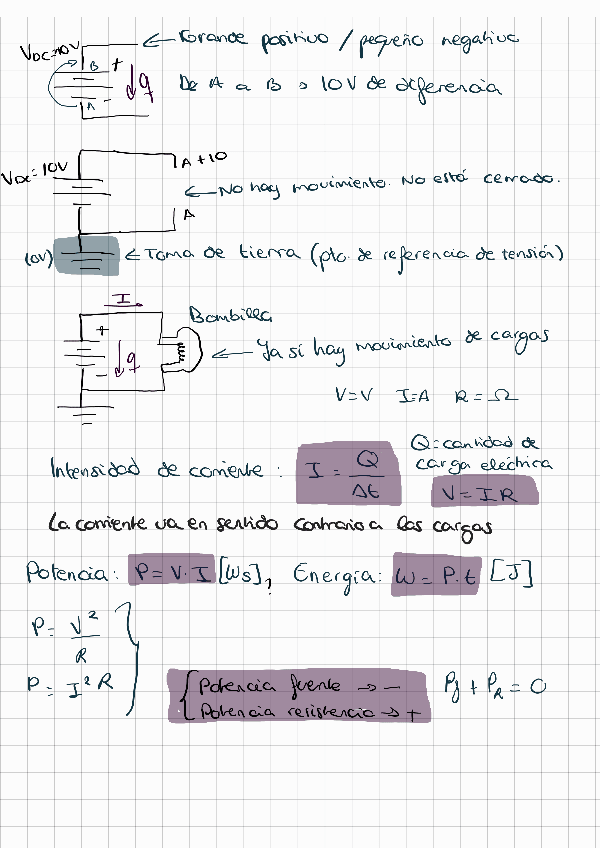 VDC=10V
← Grande positivo / pequeño negativo
B +
↓q
A -
De A a B → 10V de diferencia
VDC=10V
A+10
← No hay movimiento. No está cerrado.
A
(0V)
← Toma de tierra (pto. de referencia de tensión)
I
Bombilla
+
↓q
-
← Ya sí hay movimiento de cargas
V=V I=A R=Ω
Q=cantidad de carga eléctrica
Intensidad de corriente: I = Q/Δt
V=IR
La corriente va en sentido contrario a las cargas
Potencia: P=V·I [Ws], Energía: W=P.t [J]
P= V²/R
P= I²R
Potencia fuente → -
Potencia resistencia → +
Pf + PR = 0